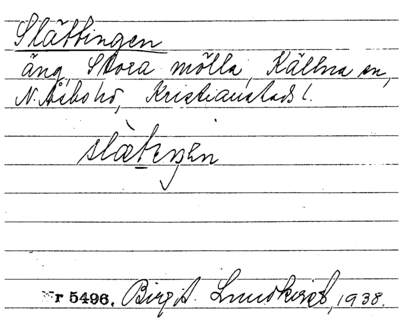 Slättingen
äng, Stora mölla, Källna sn,
N. Åsbo hd, Kristianstads l.
slætiŋən
Nr 5496. Birgit Lundkvist, 1938.